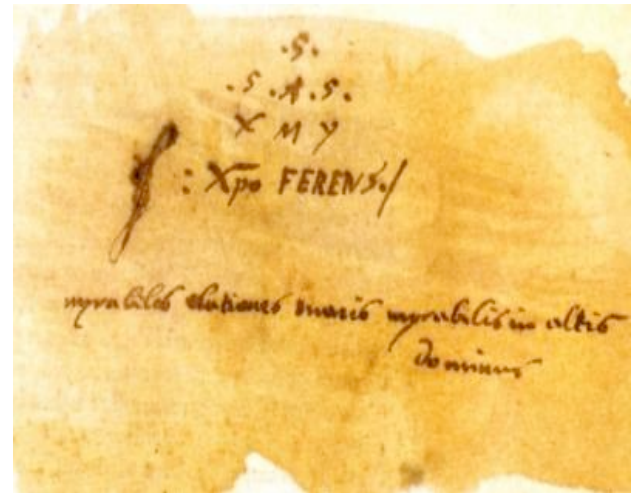 .S.
.S.A.S.
X M Y
: Xpo FERENS./
myrabiles elationes maris myrabilis in altis
dominus